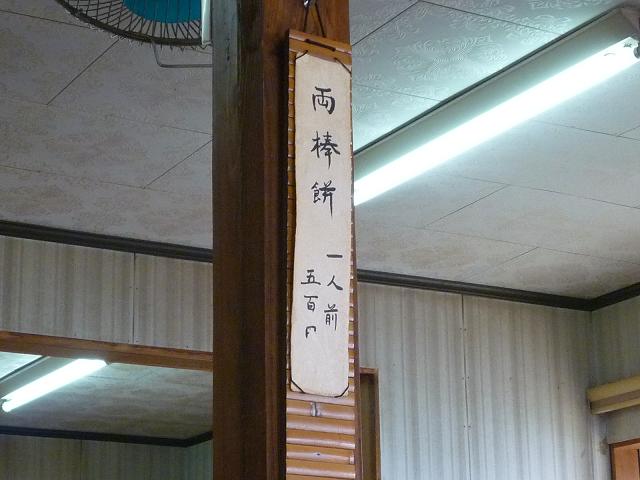 両棒餅
一人前
五百円